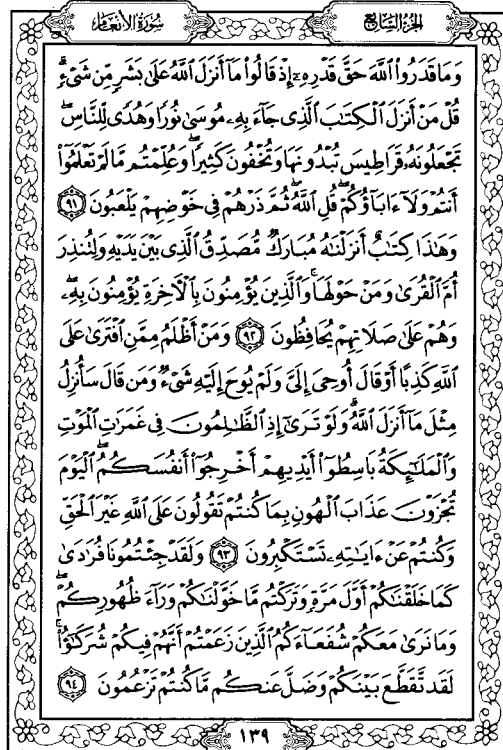 سُورَةُ الأَنعَام
الجُزءُ السَّابِعُ
وَمَا قَدَرُوا۟ ٱللَّهَ حَقَّ قَدْرِهِۦٓ إِذْ قَالُوا۟ مَآ أَنزَلَ ٱللَّهُ عَلَىٰ بَشَرٍ مِّن شَىْءٍ ۗ
قُلْ مَنْ أَنزَلَ ٱلْكِتَـٰبَ ٱلَّذِى جَآءَ بِهِۦ مُوسَىٰ نُورًا وَهُدًى لِّلنَّاسِ ۖ
تَجْعَلُونَهُۥ قَرَاطِيسَ تُبْدُونَهَا وَتُخْفُونَ كَثِيرًا ۖ وَعُلِّمْتُم مَّا لَمْ تَعْلَمُوٓا۟
أَنتُمْ وَلَآ ءَابَآؤُكُمْ ۖ قُلِ ٱللَّهُ ۖ ثُمَّ ذَرْهُمْ فِى خَوْضِهِمْ يَلْعَبُونَ ٩١
وَهَـٰذَا كِتَـٰبٌ أَنزَلْنَـٰهُ مُبَارَكٌ مُّصَدِّقُ ٱلَّذِى بَيْنَ يَدَيْهِ وَلِتُنذِرَ
أُمَّ ٱلْقُرَىٰ وَمَنْ حَوْلَهَا ۚ وَٱلَّذِينَ يُؤْمِنُونَ بِٱلْـَٔاخِرَةِ يُؤْمِنُونَ بِهِۦ ۖ
وَهُمْ عَلَىٰ صَلَاتِهِمْ يُحَافِظُونَ ٩٢ وَمَنْ أَظْلَمُ مِمَّنِ ٱفْتَرَىٰ عَلَى
ٱللَّهِ كَذِبًا أَوْ قَالَ أُوحِىَ إِلَىَّ وَلَمْ يُوحَ إِلَيْهِ شَىْءٌ وَمَن قَالَ سَأُنزِلُ
مِثْلَ مَآ أَنزَلَ ٱللَّهُ ۗ وَلَوْ تَرَىٰٓ إِذِ ٱلظَّـٰلِمُونَ فِى غَمَرَٰتِ ٱلْمَوْتِ
وَٱلْمَلَـٰٓئِكَةُ بَاسِطُوٓا۟ أَيْدِيهِمْ أَخْرِجُوٓا۟ أَنفُسَكُمُ ۖ ٱلْيَوْمَ
تُجْزَوْنَ عَذَابَ ٱلْهُونِ بِمَا كُنتُمْ تَقُولُونَ عَلَى ٱللَّهِ غَيْرَ ٱلْحَقِّ
وَكُنتُمْ عَنْ ءَايَـٰتِهِۦ تَسْتَكْبِرُونَ ٩٣ وَلَقَدْ جِئْتُمُونَا فُرَٰدَىٰ
كَمَا خَلَقْنَـٰكُمْ أَوَّلَ مَرَّةٍ وَتَرَكْتُم مَّا خَوَّلْنَـٰكُمْ وَرَآءَ ظُهُورِكُمْ ۖ
وَمَا نَرَىٰ مَعَكُمْ شُفَعَآءَكُمُ ٱلَّذِينَ زَعَمْتُمْ أَنَّهُمْ فِيكُمْ شُرَكَـٰٓؤُا۟ ۚ
لَقَد تَّقَطَّعَ بَيْنَكُمْ وَضَلَّ عَنكُم مَّا كُنتُمْ تَزْعُمُونَ ٩٤
١٣٩